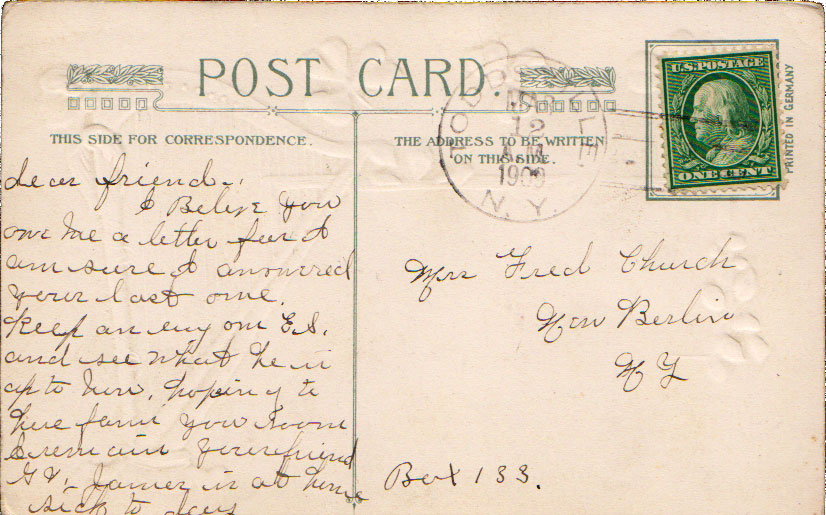 POST CARD.
THIS SIDE FOR CORRESPONDENCE.
THE ADDRESS TO BE WRITTEN
ON THIS SIDE.
U.S. POSTAGE
ONE CENT
PRINTED IN GERMANY
12
1909
N. Y.
dear friend.
I Belive you
owe me a letter for I
am sure I answered
your last one.
Keep an eny on E.S.
and see what he is
up to now, hoping to
here from you soon
I remain your friend
is at home
sick to days
Mrs Fred Church
New Berlin
N Y
Box 133.